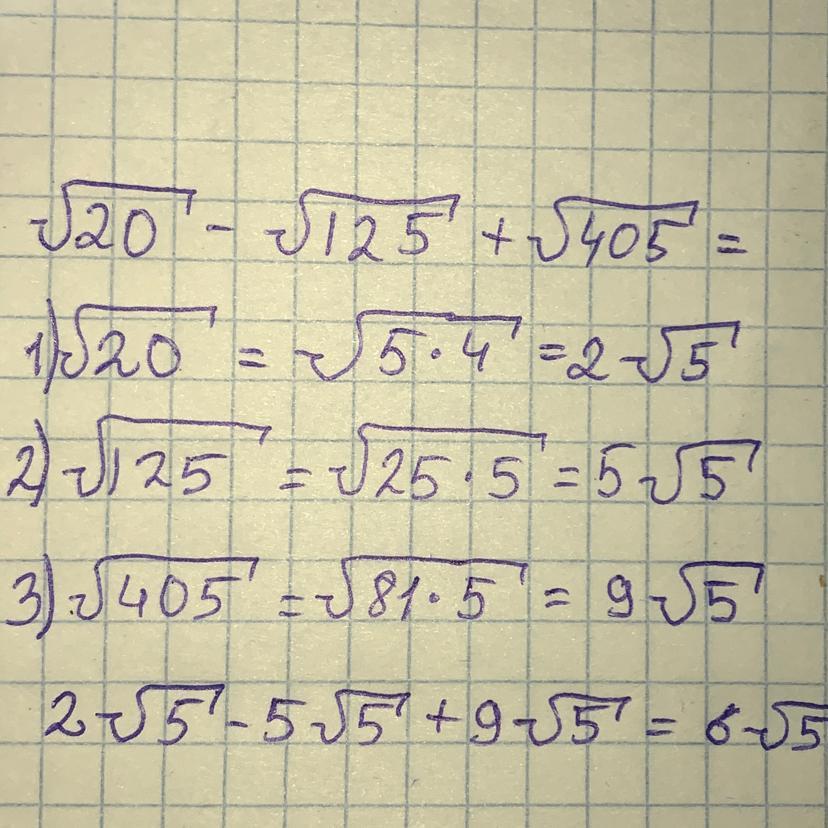 √20 - √125 + √405 =
1) √20 = √5·4 = 2√5
2) √125 = √25·5 = 5√5
3) √405 = √81·5 = 9√5
2√5 - 5√5 + 9√5 = 6√5